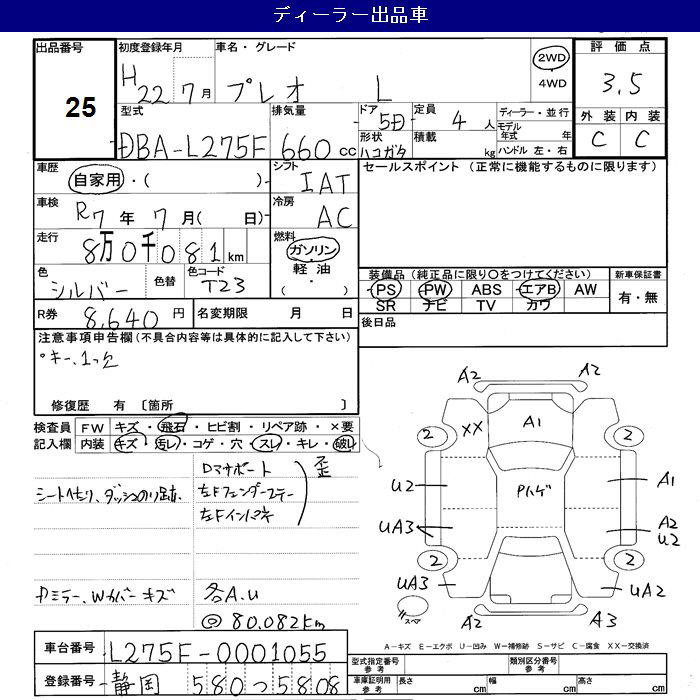 ディーラー出品車
出品番号 25
初度登録年月 H22 7月
車名・グレード プレオ L
2WD 4WD
評価点 3.5
外装 内装
C C
型式 DBA-L275F
排気量 660cc
ドア 5D
形状 ハコガタ
定員 4人
積載 kg
ディーラー・並行
モデル年式 年
ハンドル 左・右
車歴 自家用・( )
シフト IAT
セールスポイント (正常に機能するものに限ります)
車検 R7年 7月( 日)
冷房 AC
走行 8万0千081km
燃料 ガソリン
軽油
( ・ )
色 シルバー
色替
色コード T23
装備品(純正品に限り○をつけてください)
PS PW ABS エアB AW
SR ナビ TV カワ
新車保証書 有・無
R券 8,640円
名変期限 月 日
後日品
注意事項申告欄(不具合内容等は具体的に記入して下さい)
キー、1つ欠
修復歴 有 〔箇所 〕
検査員記入欄
FW キズ・飛石・ヒビ割・リペア跡・×要
内装 キズ・汚レ・コゲ・穴・スレ・キレ・破レ
左Fフェンダーステー
左Fインパネ
歪
シートヘモリ、ダッシュのり跡
ドミラー、Wカバーキズ
各A.U
◎80.082km
A2 A2
XX A1
2 2
U2 Pハゲ A1
UA3 A2
U2
2 2
UA3 UA2
スペア A2 A3
A-キズ E-エクボ U-凹み W-補修跡 S-サビ C-腐食 XX-交換済
車台番号 L275F-0001055
登録番号 静岡 580つ5808
型式指定番号 参考
類別区分番号 参考
車庫証明用 参考 長さ cm 幅 cm 高さ cm